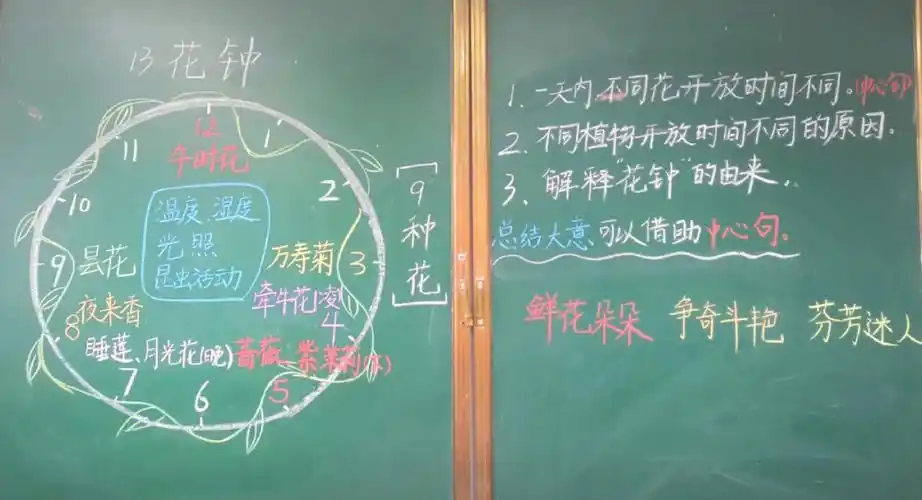 13花钟
12
午时花
11
1
10
2
温度、湿度
光照
昆虫活动
9
昙花
万寿菊
3
夜来香
牵牛花(凌)
8
4
睡莲、月光花(晚)
蔷薇、紫茉莉(下)
7
6
5
[9种花]
1、一天内,不同花开放时间不同。(中心句)
2、不同植物开放时间不同的原因。
3、解释“花钟”的由来.
总结大意可以借助中心句。
鲜花朵朵 争奇斗艳 芬芳迷人